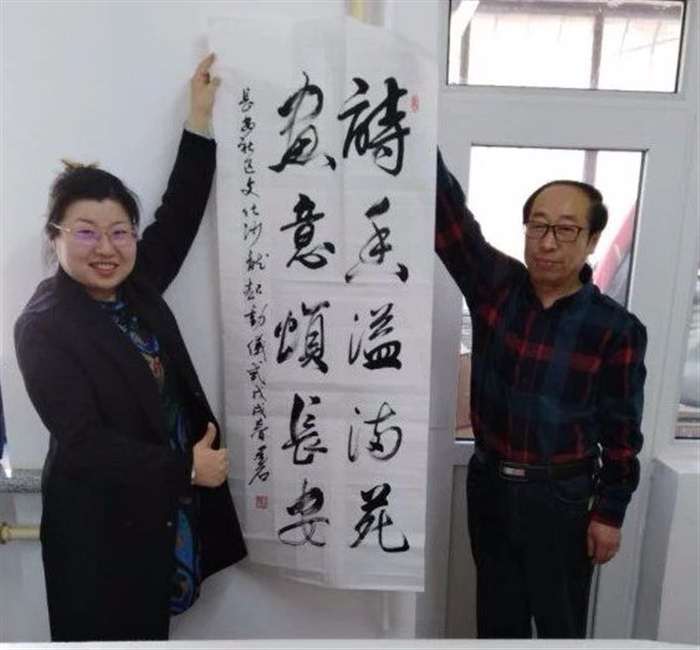 詩香溢满苑
畫意頌長安
長安社区文化沙龍起動儀式戊戌春